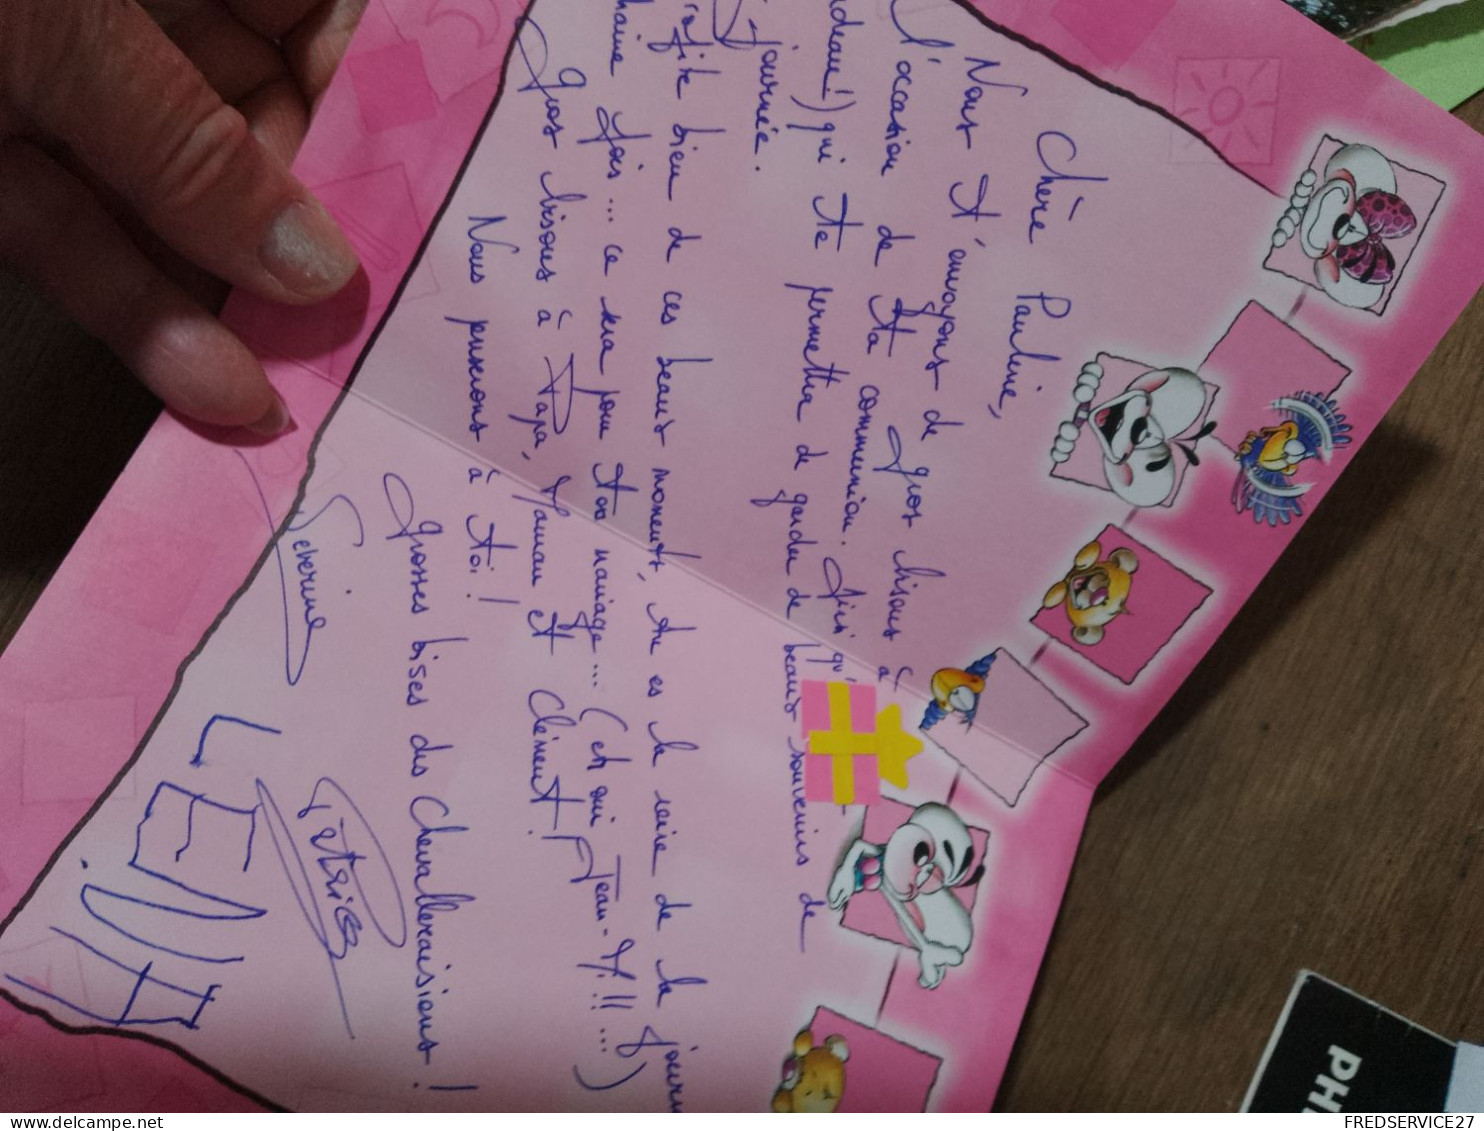 Chère Pauline,
Nous t'envoyons de gros bisous à
l'occasion de ta communion.
deau!) qui te permettra de garder de beaux souvenirs de
journée.
bien de ces beaux moments, tu es la reine de la journ
haine fois... ce sera pour ton mariage... (eh oui Jean-M!!!...)
Gros bisous à Papa, Maman et Clément!
Nous penserons à toi!
Grosses bises des Chevalleraisiens!
Séverine
Patrice
LENA
PH
delcampe.net
FREDSERVICE27